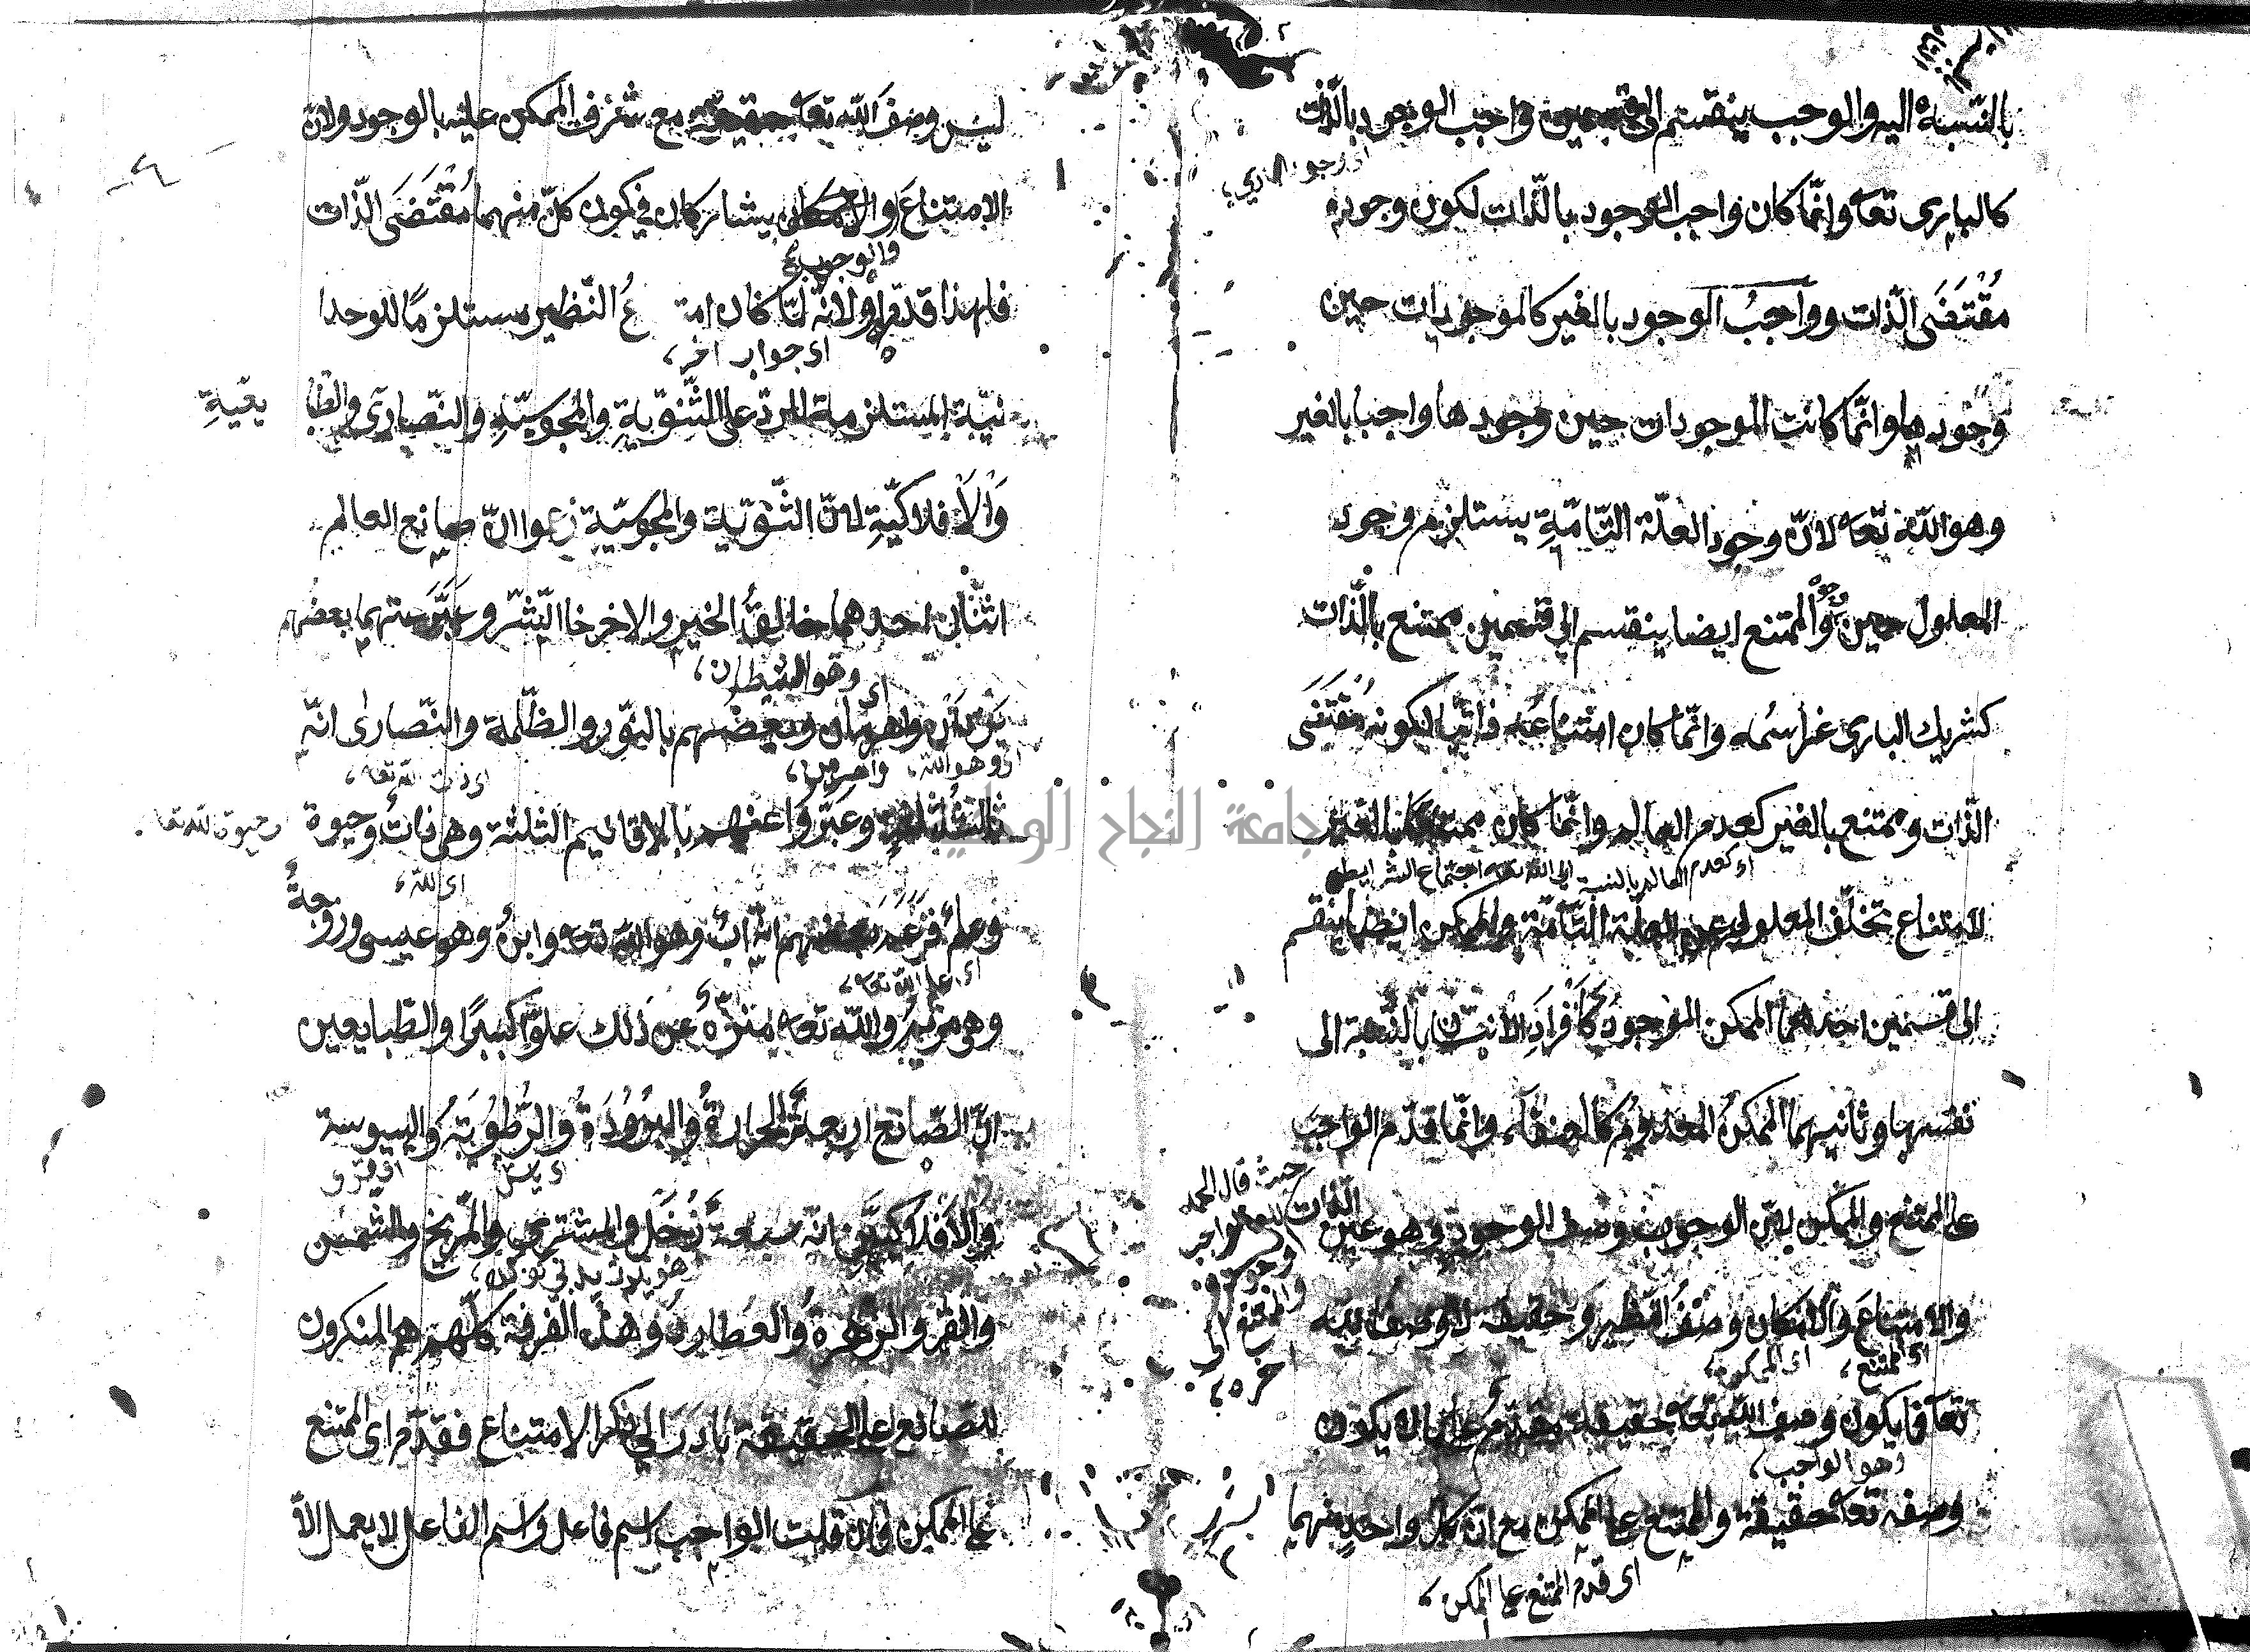 بالنسبة اليه والوجب ينقسم الى قسمين واجب الوجود بالذات
اى وجود البارى
كالبارى تعا وانّما كان واجب الوجود بالذّات لكون وجوده
مُقْتَضَى الذّات وواجبُ الوجود بالغير كالموجودات حين
وجودها وانّما كانت الموجودات حين وجودها واجبا بالغير
وهو اللّه تعا لانّ وجود العلّة التّامّةِ يستلزم وجود
المعلول حين والممتنع ايضا ينقسم الى قسمين ممتنع بالذّات
كشريك البارى عز اسمه وانّما كان امتناعه ذاتيّا لكونه مُقتَضَى
الذّات وممتنع بالغير كعدم العالم وانّما كان ممتنعا بالغير
اى كعدم العالم بالنسبة الى اللّه تعا اجتماع الشرايط
لامتناع تخلّف المعلول عن العلّة التّامّة والممكن ايضا ينقسم
الى قسمين احدهما الممكن الموجود كافراد الانسان بالنّسبة الى
نفسها وثانيهما الممكن المعدوم كالعنقاء وانّما قدّم الواجب
حيث قال الحمد
على الممتنع والممكن لانّ الوجوب وصف الوجود وهو عين الذات
لواجب
وجوده و
والممتنع
الى
اخره
والامتناعَ والامكان وصْفُ النظير وحقيقة لا وصف للّه
اى الممتنع اى الممكن
تعا فما يكون وصف اللّه تعا حقيقة مقدّم على ما لا يكون
وهو الواجب
وصفه تعا حقيقة والممتنع على الممكن مع انّ كل واحد منهما
اى قدم الممتنع على الممكن
ليس وصفَ اللّه تعا حقيقة مع شرف الممكن عليه بالوجود ولانّ
الامتناعَ والامكان يشاركان فى كون كلّ منهما مُقْتَضَى الذّات
والوجوب
فلهذا قدّم ولانّه لمّا كان امتـ ـعُ النّظير مستلزمًا للوحدا
اى جواب اخر
نيّة المستلزمة للردّ على الثّنويةِ والمجوسيّةِ والنّصارى والطّبا يعيّةِ
والافلاكيّةِ لانّ الثّنويّة والمجوسيّة زعموا انّ صانع العالم
اثنان احدهما خالقُ الخير والاخر خالق الشّرّ وعبّر عنهما بعضهم
وهو الشيطان
يزدان واهرمن وبعضهم بالنّور والظّلمة والنّصارى انّه
اى وهو اللّه واهرمن اى ذات اللّه تعا
ثالث ثلثة وعبّروا عنهم بالاقانيم الثلثة وهى ذاتٌ وحيوة
وحيوة اللّه تعا
اى اللّه
وعلمٌ فزعم بعضهم انّه ابٌ وهو اللّه تعا وابنٌ وهو عيسى وزوجةٌ
اى علم اللّه تعا
وهى مريمُ واللّه تعا منزّهٌ عن ذلك علوّا كبيرًا والطّبايعيين
انّ الصّانع اربعة الحرارةُ والبرُودَةُ والرُّطُوبَةُ واليبوسة
والافلاكيّين انّه سبعة زُحَل والمشترى والمرّيخ والشّمس
والقمر والزّهرةُ والعطارد وهذه الفرقة كلّهم هم المنكرون
للصّانع على الحقيقة بادَرَ الى ذكر الامتناع فقدّم اى الممتنع
على الممكن فان قلت الواجب اسم فاعل واسم الفاعل لا يعمل الّا
جامعة النجاح الوطنية